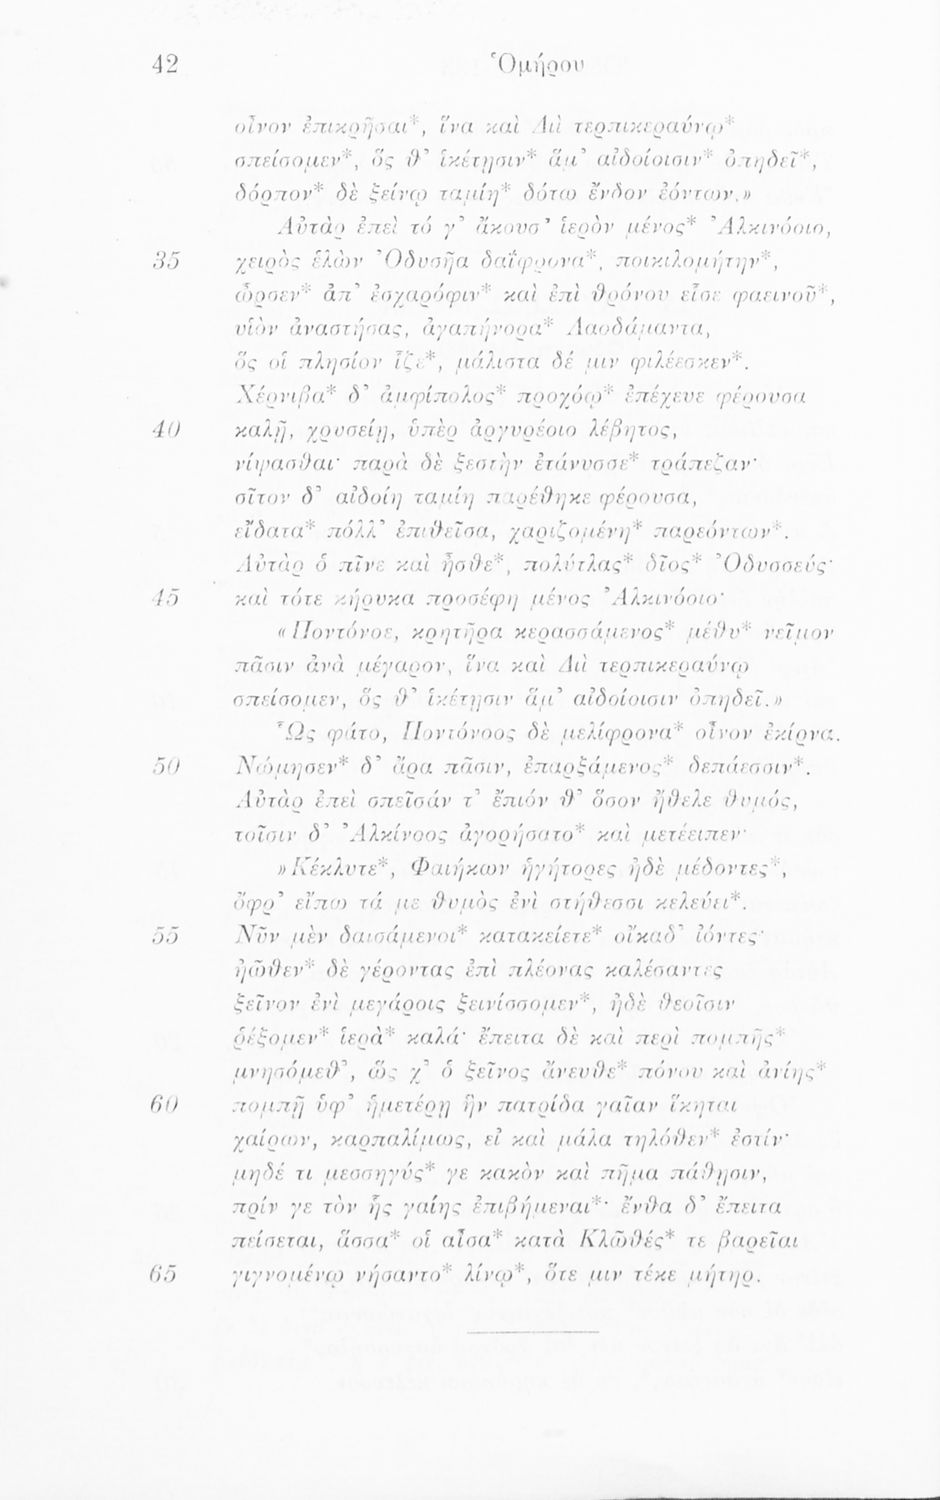 42 Ὁμήρου
οἶνον ἐπικρῆσαι*, ἵνα καὶ Διὶ τερπικεραύνῳ*
σπείσομεν*, ὅς θ’ ἱκέτῃσιν* ἅμ’ αἰδοίοισιν* ὀπηδεῖ*,
δόρπον* δὲ ξείνῳ ταμίη* δότω ἔνδον ἐόντων.»
Αὐτὰρ ἐπεὶ τό γ’ ἄκουσ’ ἱερὸν μένος* Ἀλκινόοιο,
35 χειρὸς ἑλὼν Ὀδυσῆα δαΐφρονα*, ποικιλομήτην*,
ὦρσεν* ἀπ’ ἐσχαρόφιν* καὶ ἐπὶ θρόνου εἷσε φαεινοῦ*,
υἱὸν ἀναστήσας, ἀγαπήνορα* Λαοδάμαντα,
ὅς οἱ πλησίον ἷζε*, μάλιστα δέ μιν φιλέεσκεν*.
Χέρνιβα* δ’ ἀμφίπολος* προχόῳ* ἐπέχευε φέρουσα
40 καλῇ, χρυσείῃ, ὑπὲρ ἀργυρέοιο λέβητος,
νίψασθαι· παρὰ δὲ ξεστὴν ἐτάνυσσε* τράπεζαν·
σῖτον δ’ αἰδοίη ταμίη παρέθηκε φέρουσα,
εἴδατα* πόλλ’ ἐπιθεῖσα, χαριζομένη* παρεόντων*.
Αὐτὰρ ὁ πῖνε καὶ ἦσθε*, πολύτλας* δῖος* Ὀδυσσεύς·
45 καὶ τότε κήρυκα προσέφη μένος Ἀλκινόοιο·
«Ποντόνοε, κρητῆρα κερασσάμενος* μέθυ* νεῖμον
πᾶσιν ἀνὰ μέγαρον, ἵνα καὶ Διὶ τερπικεραύνῳ
σπείσομεν, ὅς θ’ ἱκέτῃσιν ἅμ’ αἰδοίοισιν ὀπηδεῖ.»
Ὣς φάτο, Ποντόνοος δὲ μελίφρονα* οἶνον ἐκίρνα.
50 Νώμησεν* δ’ ἄρα πᾶσιν, ἐπαρξάμενος* δεπάεσσιν*.
Αὐτὰρ ἐπεὶ σπεῖσάν τ’ ἔπιόν θ’ ὅσον ἤθελε θυμός,
τοῖσιν δ’ Ἀλκίνοος ἀγορήσατο* καὶ μετέειπεν·
»Κέκλυτε*, Φαιήκων ἡγήτορες ἠδὲ μέδοντες*,
ὄφρ’ εἴπω τά με θυμὸς ἐνὶ στήθεσσι κελεύει*.
55 Νῦν μὲν δαισάμενοι* κατακείετε* οἴκαδ’ ἰόντες·
ἠῶθεν* δὲ γέροντας ἐπὶ πλέονας καλέσαντες
ξεῖνον ἐνὶ μεγάροις ξεινίσσομεν*, ἠδὲ θεοῖσιν
ῥέξομεν* ἱερὰ* καλά· ἔπειτα δὲ καὶ περὶ πομπῆς*
μνησόμεθ’, ὥς χ’ ὁ ξεῖνος ἄνευθε* πόνου καὶ ἀνίης*
60 πομπῇ ὑφ’ ἡμετέρῃ ἣν πατρίδα γαῖαν ἵκηται
χαίρων, καρπαλίμως, εἰ καὶ μάλα τηλόθεν* ἐστίν·
μηδέ τι μεσσηγύς* γε κακὸν καὶ πῆμα πάθῃσιν,
πρίν γε τὸν ἧς γαίης ἐπιβήμεναι*· ἔνθα δ’ ἔπειτα
πείσεται, ἅσσα* οἱ αἶσα* κατὰ Κλῶθές* τε βαρεῖαι
65 γιγνομένῳ νήσαντο* λίνῳ*, ὅτε μιν τέκε μήτηρ.